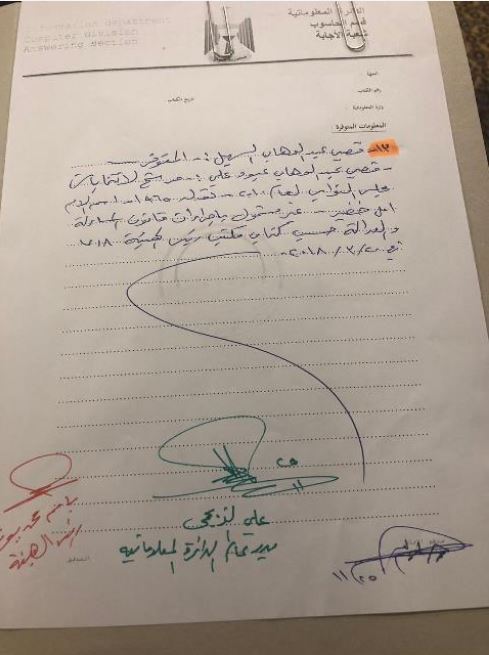 Information department
Computer division
Answering section
الدائرة المعلوماتية
قسم الحاسوب
شعبة الاجابة
الجهة
رقم الكتاب
تاريخ الكتاب
وزارة المعلوماتية
المعلومات المتوفرة :
١٢- قصي عبد الوهاب السهيل :- المتوفر
- قصي عبد الوهاب عبود علي :- مرشح للانتخابات
مجلس النواب لعام ٢٠١٠ - اسم الام
امل خضير - غير مشمول باجراءات قانون المساءلة
والعدالة حسب كتاب مكتب رئيس الهيئة ٧١٨
في ٢٠١٨/٣/٢٠
٢٥
١١
علي
مدير عام الدائرة المعلوماتية
باسم محمد
الهيئة
١١/٢٥